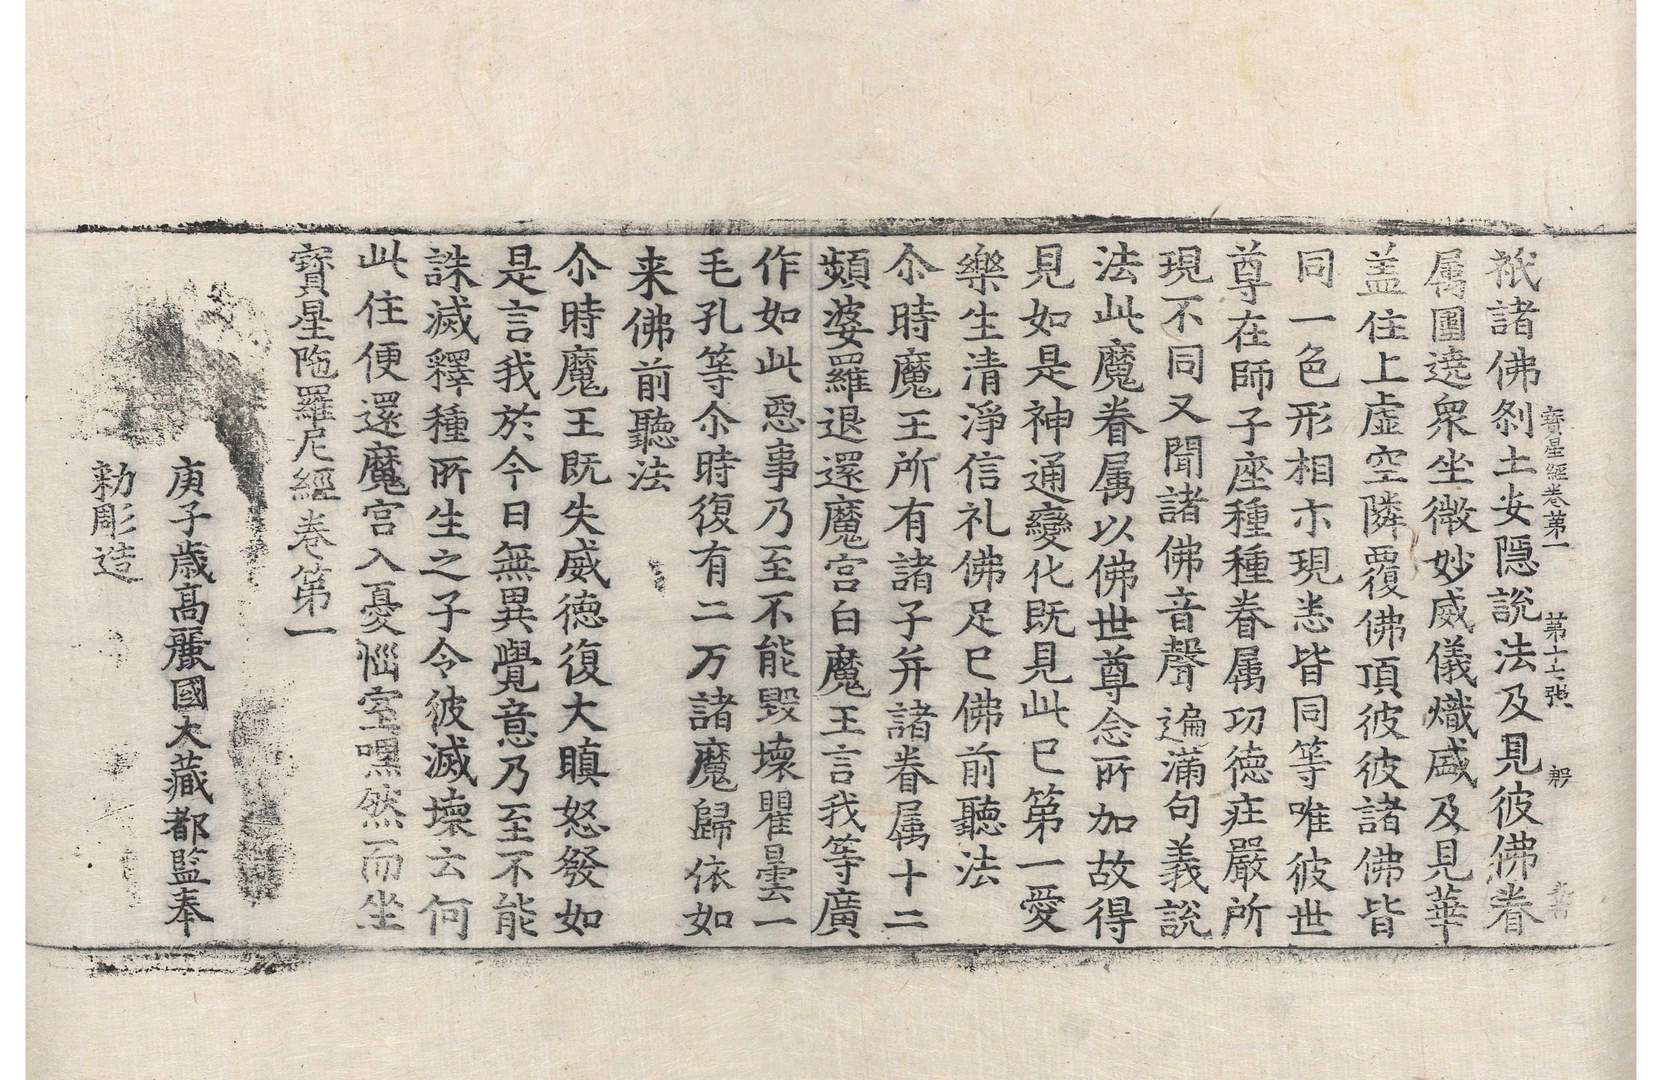 寳星經卷第一　第十七張
祇諸佛刹土安隠說法及見彼佛眷
属圍遶衆坐微妙威儀熾盛及見華
盖住上虚空隣覆佛頂彼彼諸佛皆
同一色形相尒現恙皆同等唯彼世
尊在師子座種種眷属㓛德庄嚴所
現不同又聞諸佛音聲遍滿句義說
法此魔眷属以佛世尊念所加故得
見如是神通變化既見此已第一愛
樂生清淨信礼佛足已佛前聽法
尒時魔王所有諸子并諸眷属十二
頻婆羅退還魔宫白魔王言我等廣
作如此惡事乃至不能毀壊瞿曇一
毛孔等尒時復有二万諸魔歸依如
来佛前聽法
尒時魔王既失威德復大瞋怒發如
是言我於今日無異覺意乃至不能
誅滅釋種所生之子令彼滅壊云何
此住便還魔宫入憂惱室嘿然而坐
寳星陁羅尼經卷第一
庚子歳髙麗國大藏都監奉
勑彫造